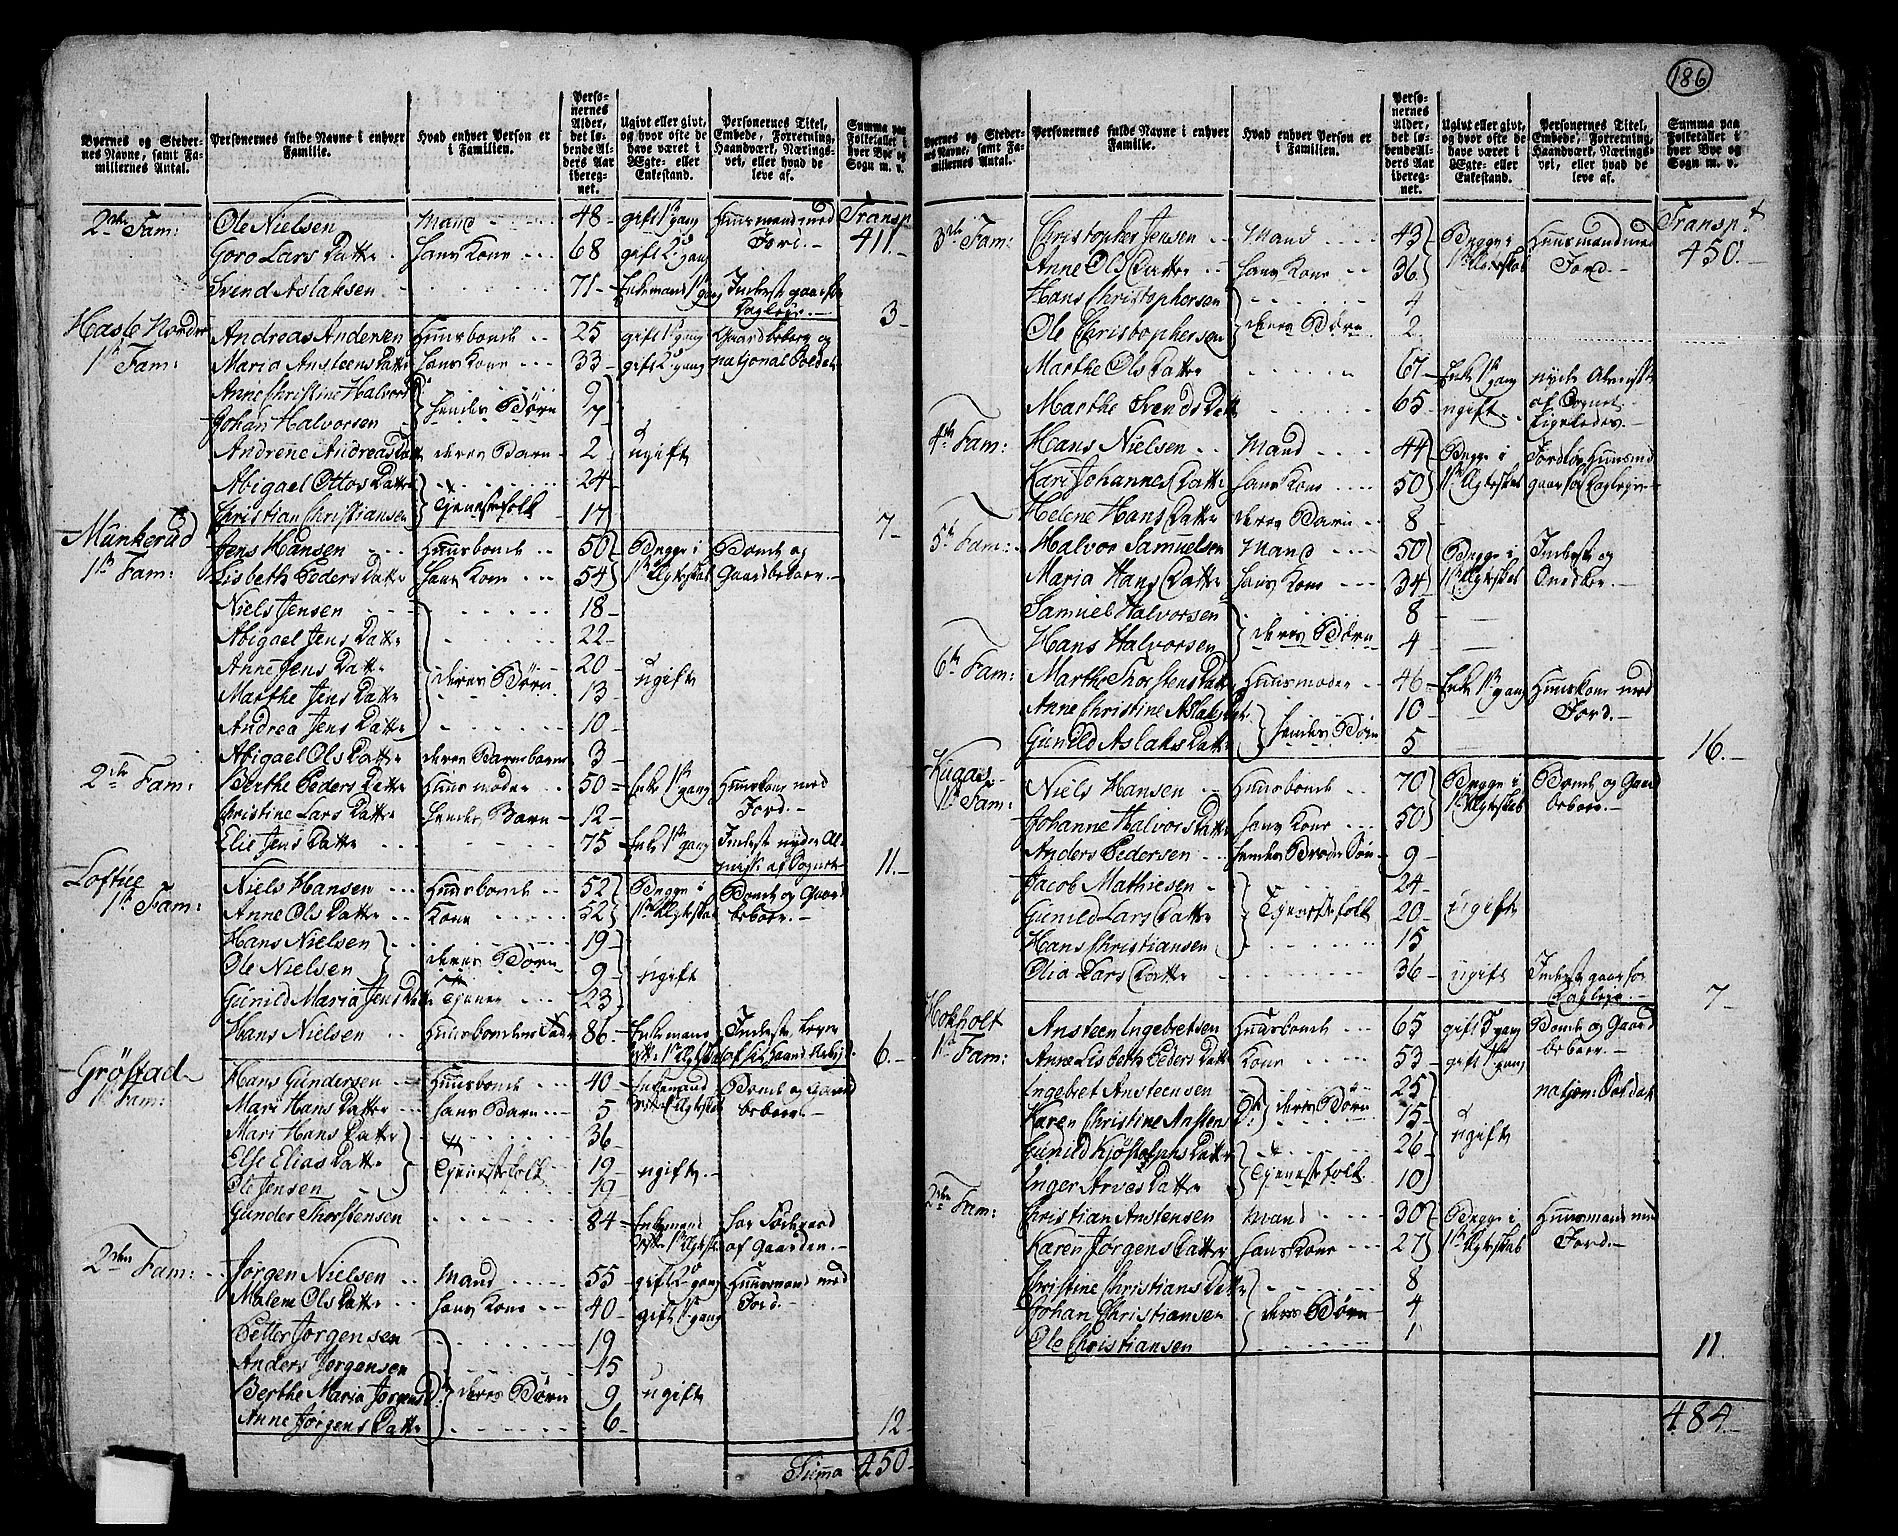 186
Byernes og Stedernes Navne, samt Familiernes Antal.
Personernes fulde Navne i enhver Familie.
Hvad enhver Person er i Familien.
Personernes Alder, det løbende Alders Aar iberegnet.
Ugivt eller givt, og hvor ofte de have været i Ægte- eller Enkestand.
Personernes Titel, Embede, Forretning, Haandværk, Næringsvei, eller hvad de leve af.
Summa paa Folketallet i hver Bye og Sogn m. v.
Transp
411.-
2den Fam: Ole Nielsen Mand 48 gift 1st gang Huusmand med Jord.
Goro Lars Datter hans Kone 68 gift 2. gang
Svend Aslaksen 71 Enkemand 1st gang Inderst gaar for Dagleje.
3
Hasle Nordre
1st Fam: Andreas Andersen Huusbonde 25 gift 1st gang Gaardbeboer og
Maria Ansteens Datter hans Kone 33 gift 2. gang national Soldat
Anne Christine Halvors D. 9
Johan Halvorsen hendes Børn 7
Andrene Andreas Datt deres Barn 2 ugift
Abigael Ottos Datter 24
Christian Christiansen Tjenestefolk 17
7
Munkerud
1st Fam: Jens Hansen Huusbonde 50 Begge i Bonde og
Lisbeth Peders Datter hans Kone 54 1st Ægteskab Gaardbeboer.
Niels Jensen 18
Abigael Jens Datter 22
Anne Jens Datter 20
Marthe Jens Datter deres Børn 13 ugift
Andrea Jens Datter 10
Abigael Ols Datter deres Barnebarn 3
2den Fam: Berthe Peders Datter Huusmoder 50 Enke 1st gang Huuskone med
Christine Lars Datter hendes Barn 12 Jord.
Elie Jens Datter 75 Enke 1st gang Inderst nyder Almisse af Sognet
11.
Loftue
1st Fam: Niels Hansen Huusbonde 52 Begge i Bonde og Gaard
Anne Ols Datter Kone 52 1st Ægteskab beboer.
Hans Nielsen 19
Ole Nielsen deres Børn 9 ugift
Gunild Maria Jens Datt Tjener 23
Hans Nielsen Huusbondens Fader 86 Enkemand
6.
Gröstad
1st Fam: Hans Gundersen Huusbonde 40 Enkemand Bonde og Gaard
Mari Hans Datter hans Barn 5 beboer.
Mari Hans Datter 36
Else Elias Datter Tjenestefolk 19 ugift
Ole Jensen 19
Gunder Thorstensen 84 Enkemand har Føderaad af Gaarden.
2den Fam: Jörgen Nielsen Mand 55 gift 2. gang Huusmand med
Malene Ols Datter hans Kone 40 gift 1st gang Jord.
Petter Jorgensen 19
Anders Jorgensen 15
Berthe Maria Jorgens D. deres Børn 9 ugift
Anne Jørgens Datter 6
12
Summa 450
Byernes og Stedernes Navne, samt Familiernes Antal.
Personernes fulde Navne i enhver Familie.
Hvad enhver Person er i Familien.
Personernes Alder, det løbende Alders Aar iberegnet.
Ugivt eller givt, og hvor ofte de have været i Ægte- eller Enkestand.
Personernes Titel, Embede, Forretning, Haandværk, Næringsvei, eller hvad de leve af.
Summa paa Folketallet i hver Bye og Sogn m. v.
Transpt
450.
3de Fam: Christopher Jensen Mand 43 Begge i Huusmand med
Anne Ols Datter hans Kone 36 1st Ægteskab Jord.
Hans Christophersen 4
Ole Christophersen deres Børn 2
Marthe Ols Datter 67 Enke 1st gang nyder Almisse
Marthe Svends Datt 65 ugift af Sognet ligeledes.
4de Fam: Hans Nielsen Mand 44 Begge i Jordløs Huusmd
Kari Johannes Datter hans Kone 50 1st Ægteskab gaar for Dagleje
Helene Hans Datter deres Barn 8
5te Fam: Halvor Samuelsen Mand 50 Begge i Inderst og
Maria Hans Datter hans Kone 34 1st Ægteskab
Samuel Halvorsen 8
Hans Halvorsen deres Børn 4
6te Fam: Marthe Thorstens Datter Huusmoder 46 Enke 1st gang Huuskone med
Anne Christine Aslaks Dt. 10 Jord.
Gunild Aslaks Datter hendes Børn 5
16.
1st Fam: Niels Hansen Huusbonde 70 Begge i Bonde og Gaard
Johanne Halvors Datter hans Kone 50 1st Ægteskab beboer.
Anders Pedersen hendes Broder Søn 9
Jacob Mathiesen 24
Gunild Lars Datter Tjenestefolk 20 ugift
Hans Christiansen 15
Olia Lars Datter 36 ugift Inderst gaar for Dagleje.
7
Hokholt
1st Fam: Ansteen Ingebretsen Huusbonde 65 gift 3 gang Bonde og Gaard
Anne Lisbeth Peders Datt Kone 53 gift 1st gang beboer.
Ingebret Ansteensen 25 nation: Soldat
Karen Christine Ansten D: deres Børn 15
Gunild Kjöstolphs Datter 26 ugift
Inger Arves Datter Tjenestefolk 10
2den Fam: Christian Anstensen Mand 30 Begge i Huusmand med
Karen Jörgens Datter hans Kone 27 1st Ægteskab Jord.
Christine Christians Datter 8
Johan Christiansen deres Børn 4
Ole Christiansen 1
11.
484.